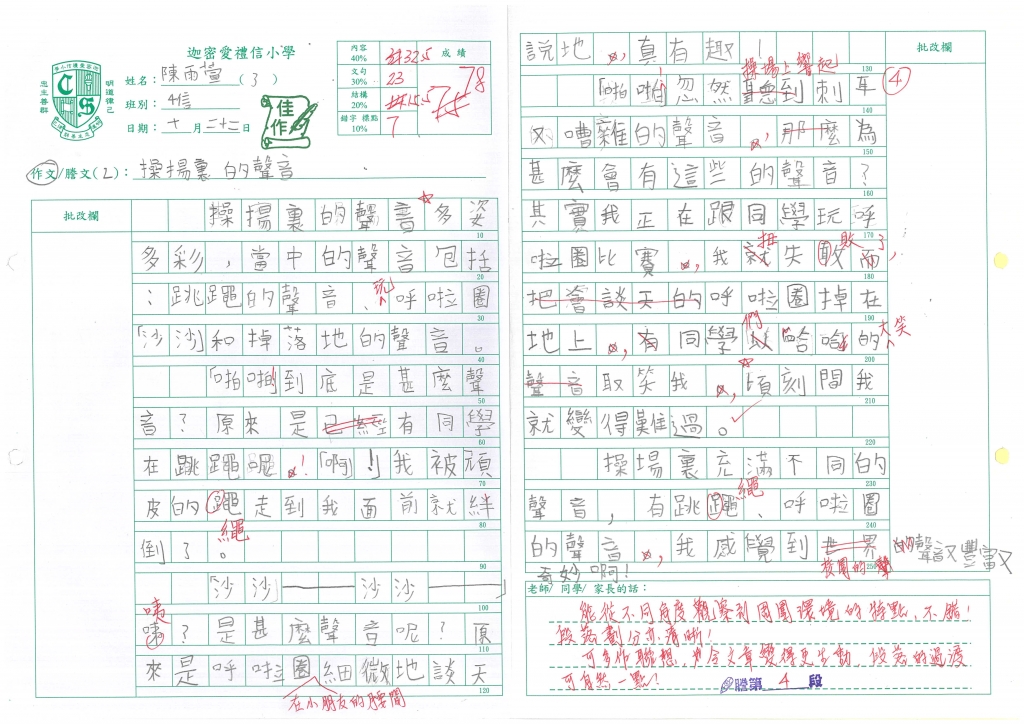 迦密愛禮信小學
姓名：陳雨萱（3）
班別：4信
日期：十月二十二日
明道律己
忠主善群
佳作
內容 40% 32.5
文句 30% 23
結構 20% 15.5
錯字 標點 10% 7
成績
78
作文/謄文(2)：操揚裏的聲音
批改欄
操揚裏的聲音多姿
10
多彩，當中的聲音包括
20
：跳躍的聲音、玩呼啦圈
30
「沙沙」和掉落地的聲音。
40
「啪啪」到底是甚麼聲
50
音？原來是已經有同學
60
在跳躍呢！「啊」！我被頑
70
皮的繩走到我面前就絆
80
繩
倒了。
90
「沙沙——沙沙——」
100
咦
咦？是甚麼聲音呢？原
110
來是呼啦圈細微地談天
120
在小朋友的腰間
批改欄
說地，真有趣！
130
操場上響起
「啪啪」忽然聽到刺耳
140
④
又嘈雜的聲音，那麼為
150
甚麼會有這些的聲音？
160
其實我正在跟同學玩呼
170
扭 敗了，
啦圈比賽，我就失敗而
180
把會談天的呼啦圈掉在
190
們 大笑
地上，有同學以哈哈的
200
聲音取笑我，頃刻間我
210
就變得難過。
220
操場裏充滿不同的
230
繩
聲音，有跳繩、呼啦圈
240
的聲音，我感覺到世界的聲音又豐富又
250
校園的聲
奇妙啊！
老師/ 同學/ 家長的話：
能從不同角度觀察到周圍環境的特點，不錯！
段落劃分亦清晰！
可多作聯想，力令文章變得更生動，段落的過渡
可自然一點！
謄第 4 段